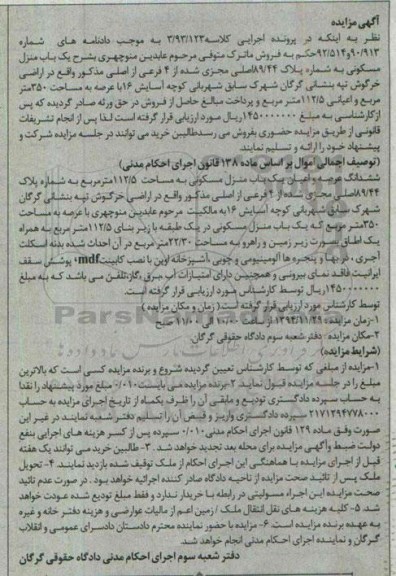 آگهی مزایده
نظر به اینکه در پرونده اجرایی کلاسه ۳/۹۳/۱۲۳ به موجب دادنامه های شماره
۹۰/۹۱۳و۹۲/۵۱۴ حکم به فروش ماترک متوفی مرحوم عابدین منوچهری بشرح یک باب منزل
مسکونی به شماره پلاک ۸۹/۴۴اصلی مجزی شده از ۴ فرعی از اصلی مذکور واقع در اراضی
خرگوش تپه بنشانی گرگان شهرک سابق شهربانی کوچه آسایش ۱۶با عرصه به مساحت ۳۵۰متر
مربع و اعیانی ۱۱۲/۵متر مربع و پرداخت مبالغ حاصل از فروش در حق ورثه صادر گردیده که پس
ازکارشناسی به مبلغ ۱۴۵۰۰۰۰۰۰۰ریال مورد ارزیابی قرار گرفته است لذا پس از انجام تشریفات
قانونی از طریق مزایده حضوری بفروش می رسدطالبین خرید می توانند در جلسه مزایده شرکت و
پیشنهاد خود را ارائه و تسلیم نمایند
(توصیف اجمالی اموال بر اساس ماده ۱۳۸ قانون اجرای احکام مدنی)
ششدانگ عرصه و اعیان یک باب منزل مسکونی به مساحت ۱۱۲/۵ مترمربع به شماره پلاک
۸۹/۴۴اصلی مجزی شده از ۴ فرعی از اصلی مذکور واقع در اراضی خرگوش تپه بنشانی گرگان
شهرک سابق شهربانی کوچه آسایش ۱۶به مالکیت مرحوم عابدین منوچهری با عرصه به مساحت
۳۵۰متر مربع که یک باب منزل مسکونی در یک طبقه با زیر بنای ۱۱۲/۵متر مربع به همراه
یک اطاق بصورت زیر زمین و راهرو به مساحت ۲۲/۳۰متر مربع در آن احداث شده بدنه اسکلت
آجری ، درها و پنجره ها آلومینیومی و چوبی ،آشپزخانه اوپن با نصب کابینتmdf، پوشش سقف
ایرانیت فاقد نمای بیرونی و همچنین دارای امتیازات آب ،برق ،گاز،تلفن می باشد که به مبلغ
۱۴۵۰۰۰۰۰۰۰ریال توسط کارشناس مورد ارزیابی قرار گرفته است.
توسط کارشناس مورد ارزیابی قرار گرفته است( زمان و مکان مزایده )
۱-زمان مزایده: ۱۳۹۴/۱۱/۲۹از ساعت ۱۰:۰۰ الی ۱۱:۰۰ صبح
۲-مکان مزایده : دفتر شعبه سوم دادگاه حقوقی گرگان
(شرایط مزایده)
۱-مزایده از مبلغی که توسط کارشناس تعیین گردیده شروع و برنده مزایده کسی است که بالاترین
مبلغ را در جلسه مزایده قبول نماید ۲-برنده مزایده می بایست ۰/۰۱۰ مبلغ مورد پیشنهاد را نقدا
به حساب سپرده دادگستری تودیع و مابقی آن را ظرف یکماه از تاریخ اجرای مزایده به حساب
۲۱۷۱۲۹۴۷۷۸۰۰۰ سپرده دادگستری واریز و قبض آن را تسلیم دفتر شعبه نمایند در غیر این
صورت وفق ماده ۱۲۹ قانون اجرای احکام مدنی ۰/۰۱۰ سپرده پس از کسر هزینه های اجرایی بنفع
دولت ضبط وآگهی مزایده برای محله بعد تجدید خواهد شد. ۳- طالبین خرید می توانند یک هفته
قبل از اجرای مزایده با هماهنگی این اجرای احکام از ملک توقیف شده بازدید نمایند. ۴- تحویل
ملک پس از تائید صحت مزایده از ناحیه دادگاه صادر کننده اجرائیه خواهد بود . در صورت عدم تائید
صحت مزایده این اجراء مسولیتی در رابطه با خریدار ندارد و فقط مبلغ تودیع شده عودت خواهد
شد ۵- کلیه هزینه های نقل انتقال ملک / زمین اعم از مالیات عوارضی و هزینه دفتر خانه و غیره
به عهده برنده مزایده است. ۶- مزایده با حضور نماینده محترم دادستان دادسرای عمومی و انقلاب
گرگان و نماینده اجرای احکام مدنی انجام خواهد شد.
دفتر شعبه سوم اجرای احکام مدنی دادگاه حقوقی گرگان